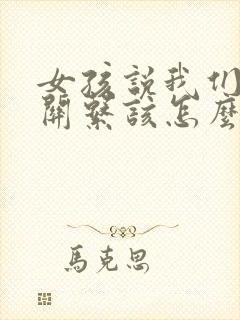 女孩說我们
關繫該怎麼
馬克思